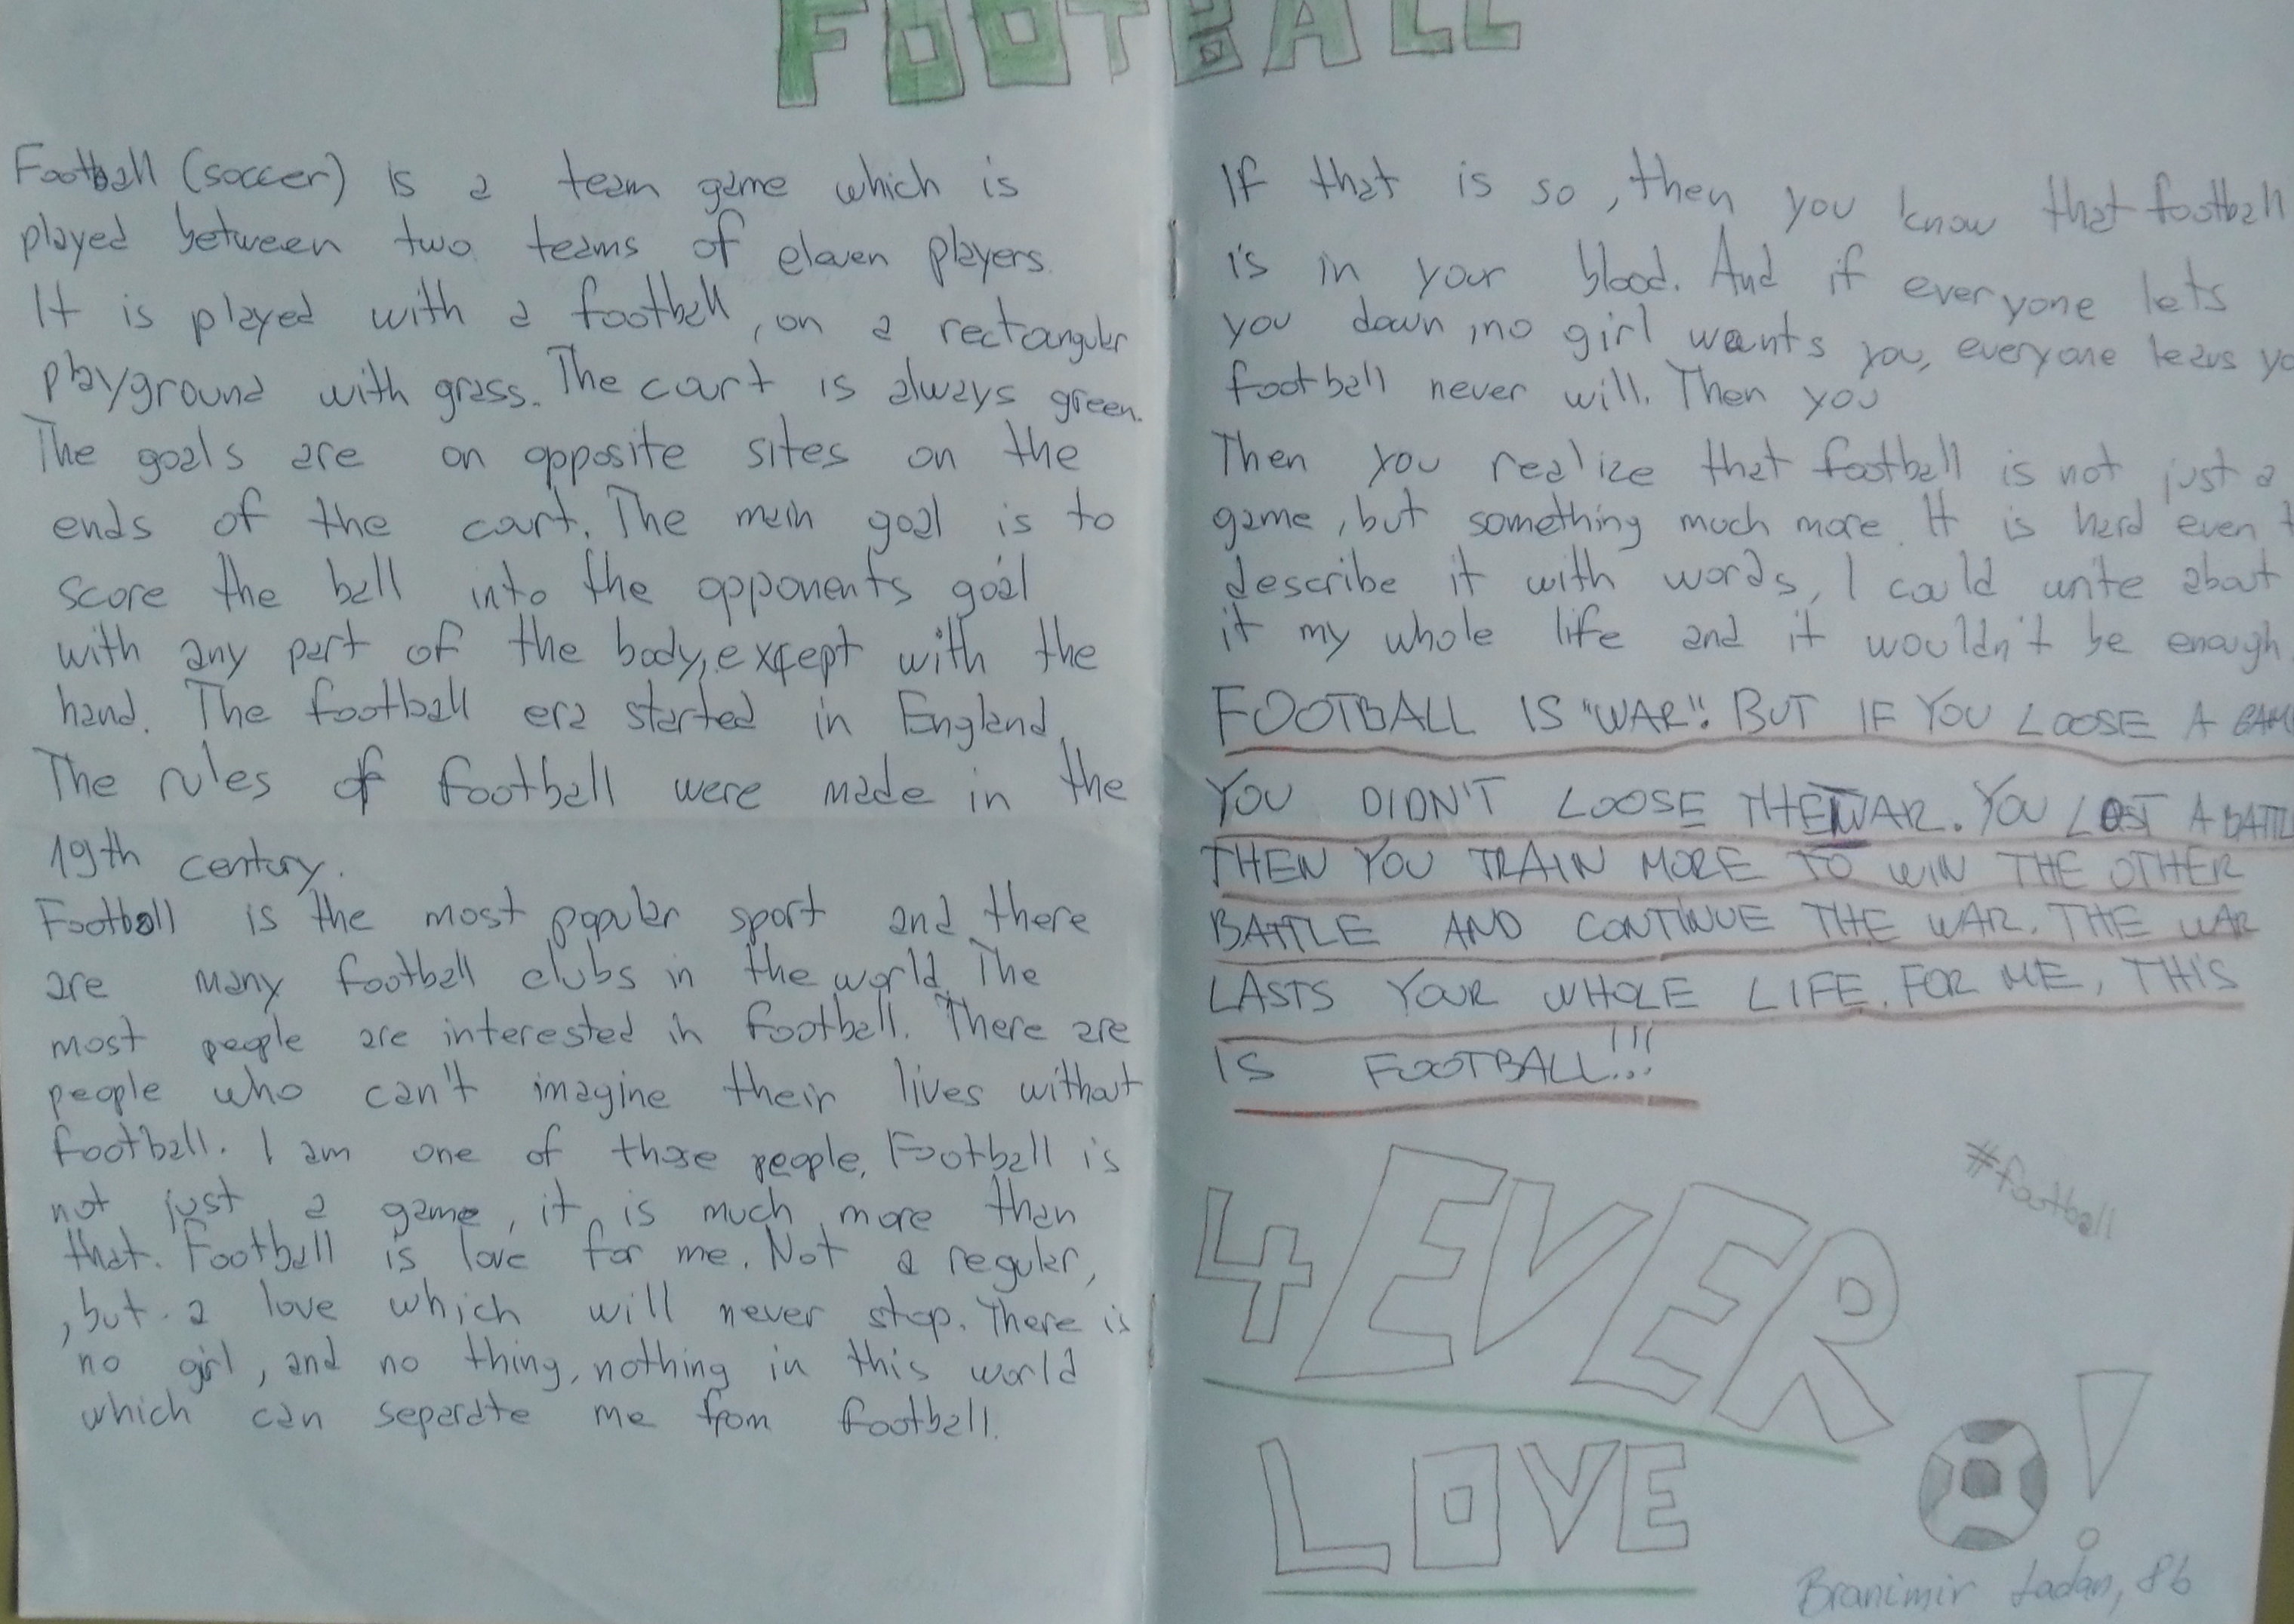 FOOTBALL
Football (soccer) is a team game which is
played between two teams of eleven players.
It is played with a football, on a rectangular
playground with grass. The court is always green.
The goals are on opposite sites on the
ends of the court. The main goal is to
score the ball into the opponents goal
with any part of the body, except with the
hand. The football era started in England.
The rules of football were made in the
19th century.
Football is the most popular sport and there
are many football clubs in the world. The
most people are interested in football. There are
people who can't imagine their lives without
football. I am one of those people. Football is
not just a game, it is much more than
that. Football is love for me. Not a regular,
, but a love which will never stop. There is
no girl, and no thing, nothing in this world
which can separate me from football.
If that is so, then you know that football
is in your blood. And if everyone lets
you down, no girl wants you, everyone leavs yo
football never will. Then you
Then you realize that football is not just a
game, but something much more. It is hard even t
describe it with words, I could write about
it my whole life and it wouldn't be enough.
FOOTBALL IS "WAR". BUT IF YOU LOOSE A GAM
YOU DIDN'T LOOSE THE WAR. YOU LOST A BATTL
THEN YOU TRAIN MORE TO WIN THE OTHER
BATTLE AND CONTINUE THE WAR. THE WAR
LASTS YOUR WHOLE LIFE. FOR ME, THIS
IS FOOTBALL!!!
#football
4EVER
LOVE!
Branimir 8b